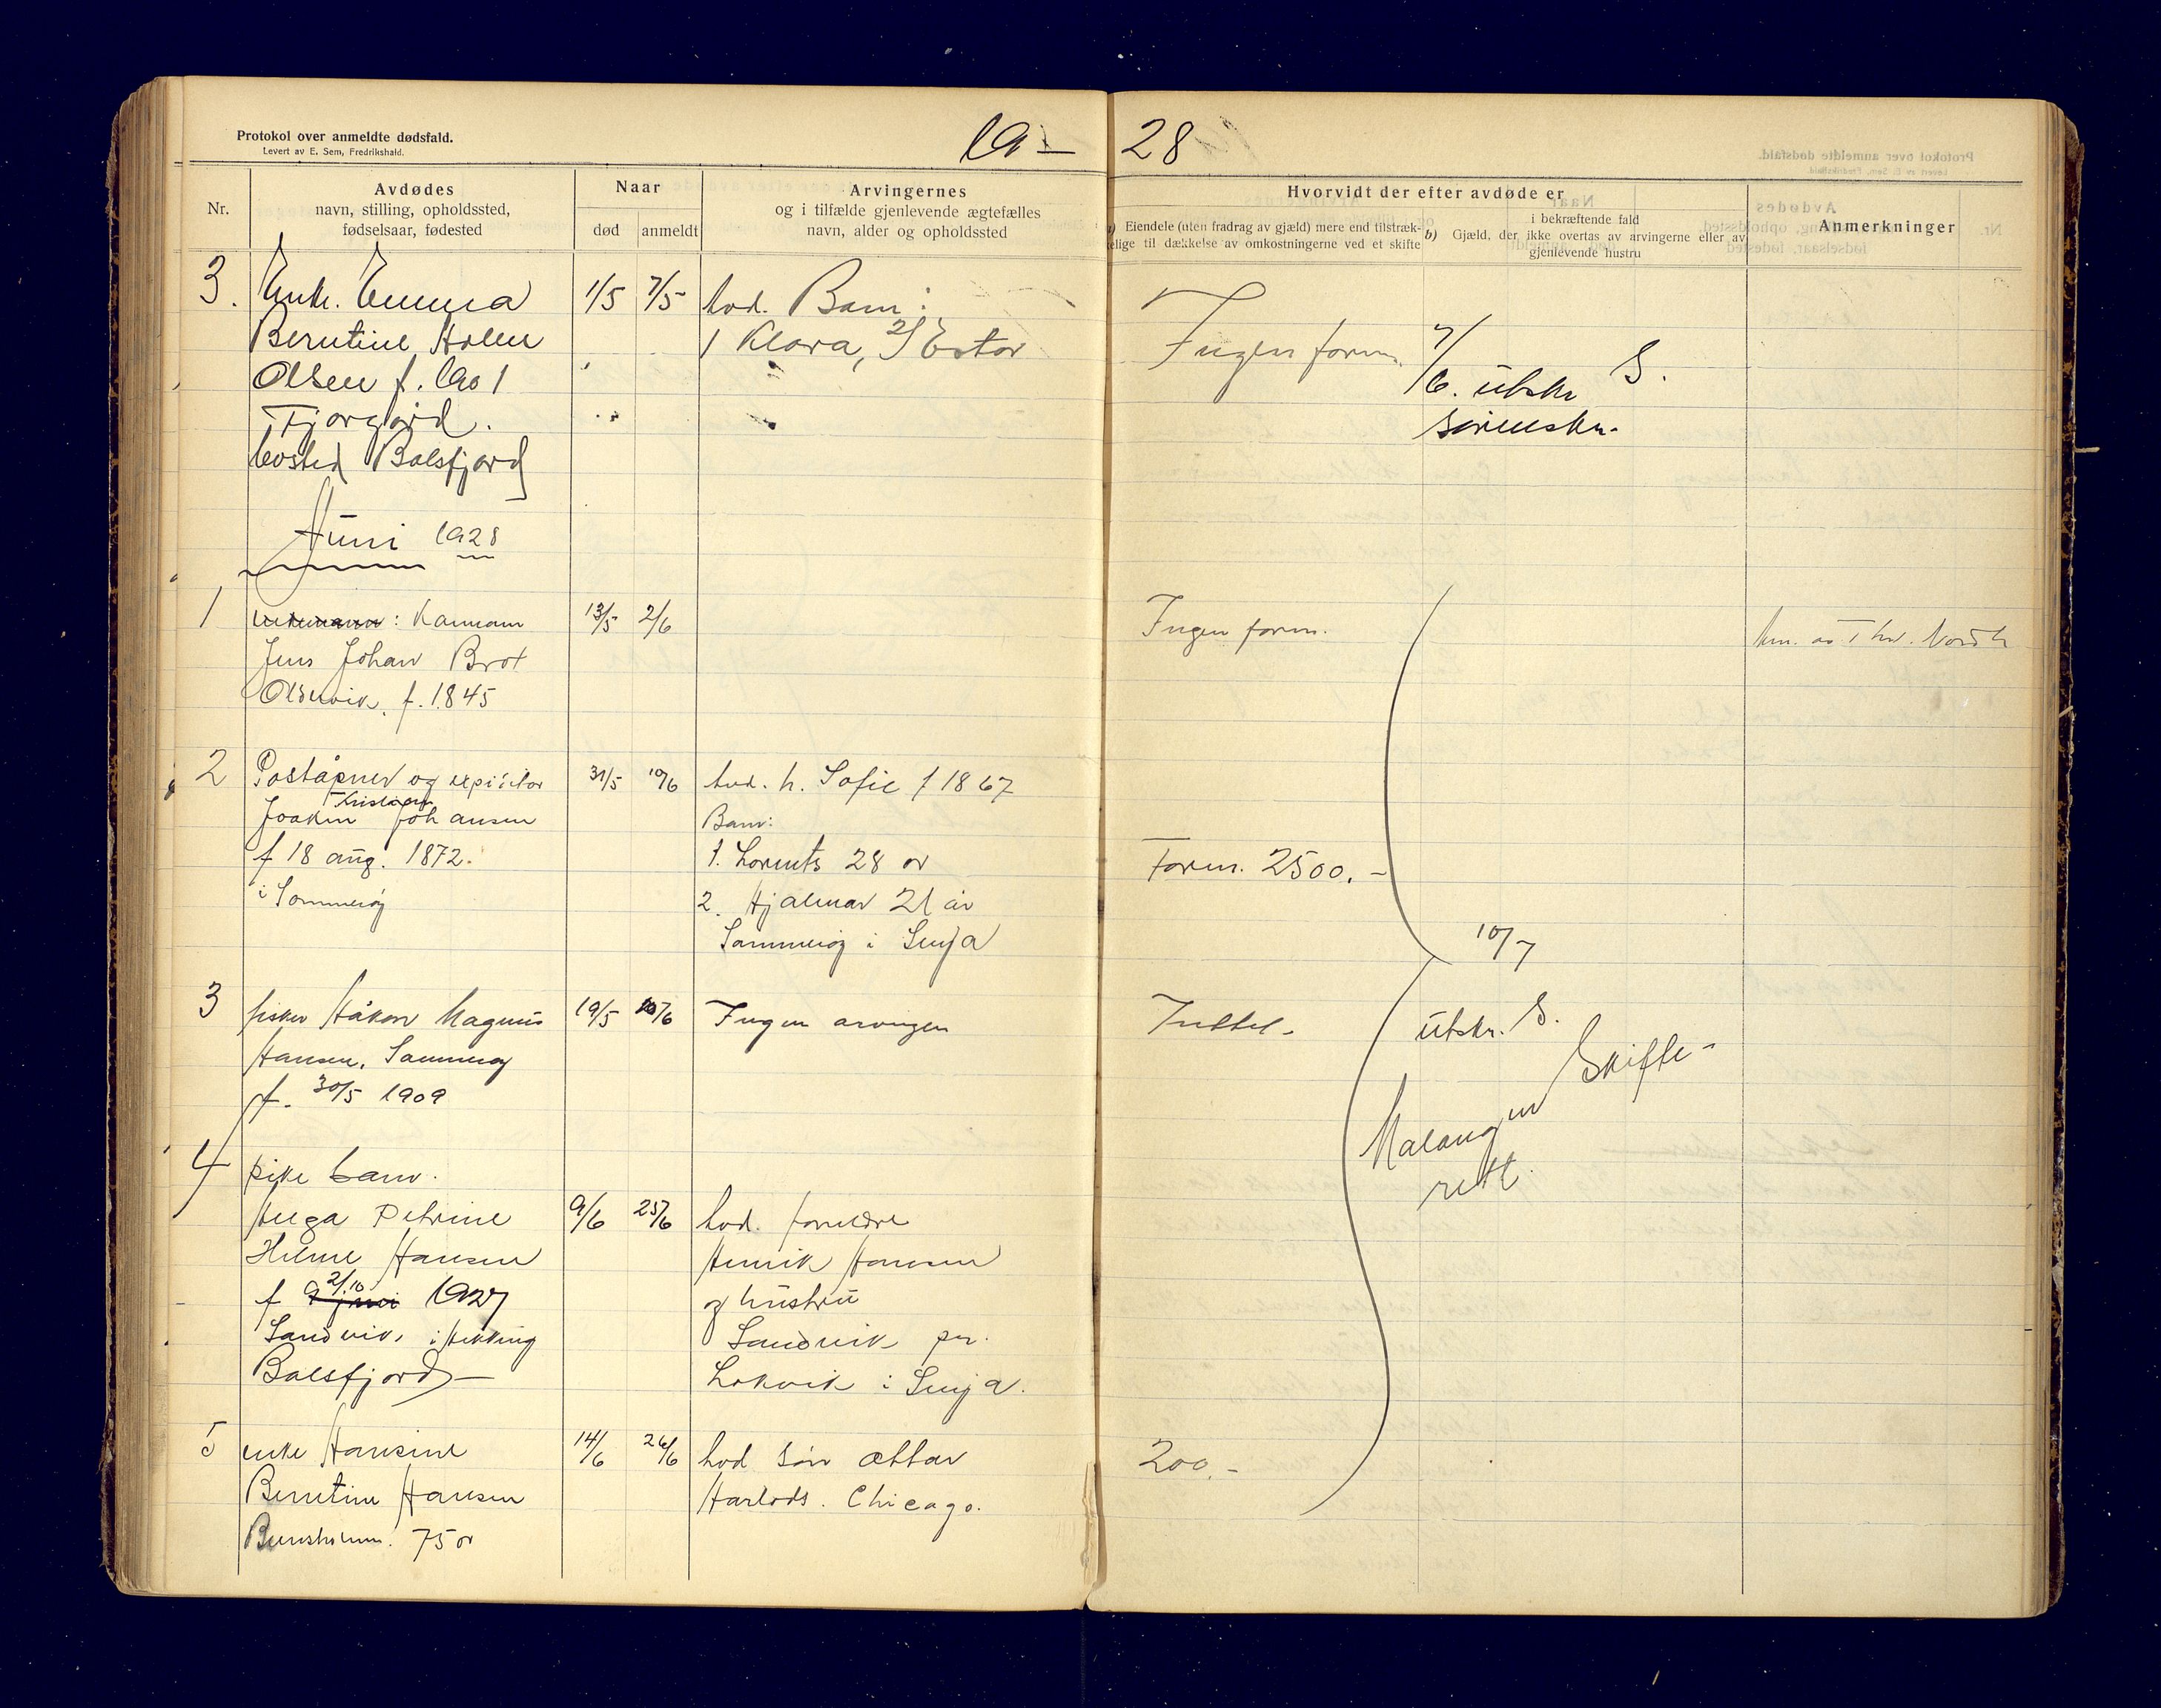 Protokol over anmeldte dødsfald.
Levert av E. Sem, Fredrikshald.
19 – 28
Nr.
Avdødes
navn, stilling, opholdssted,
fødselsaar, fødested
Naar
død
anmeldt
Arvingernes
og i tilfælde gjenlevende ægtefælles
navn, alder og opholdssted
Hvorvidt der efter avdøde er
a) Eiendele (uten fradrag av gjæld) mere end tilstræk-
kelige til dækkelse av omkostningerne ved et skifte
i bekræftende fald
b) Gjæld, der ikke overtas av arvingerne eller av
gjenlevende hustru
Anmerkninger
3. Enk. Emma 1/5 7/5 hvd. Barn:
Berntine Holm 1 Klara, 2/ Ester Ingen form. 7/
Olsen f. 1901 6. utskr S.
Fjorgård. sorenskr.
bosted Balsfjord
Juni 1928
1 : Kaarmann 13/5 2/6 Ingen form.
Jens Johan Brox
Oldervik, f. 1845
2 Poståpner og expiditor 31/5 10/6 hvd. h. Sofie f 1867
Kristian
Joakim Johansen Barn:
f 18 aug. 1872. 1. Lorents 28 år Form. 2500.-
i Sommerøy 2. Hjalmar 21 år
Sommerøy i Senja 10/7
3 fisker Håkon Magnus 19/5 10/6 Ingen arvingen Intet- utskr. S.
Hansen, Sommerøy
f. 30/5 1909
Malangen Skifte-
rett
4 pike barn.
Helga Petrine 9/6 25/6 hvd. foreldre
Hilme Hansen Henrik Hansen
2/10
f 9 juni 1927 og hustru
Sandvik, i Hekking Sandvik pr.
Balsfjord – Lakvik i Senja.
5 enke Hansine 14/6 26/6 hvd sønn Ottar 200.-
Berntine Hansen Harlods. Chicago.
75 år